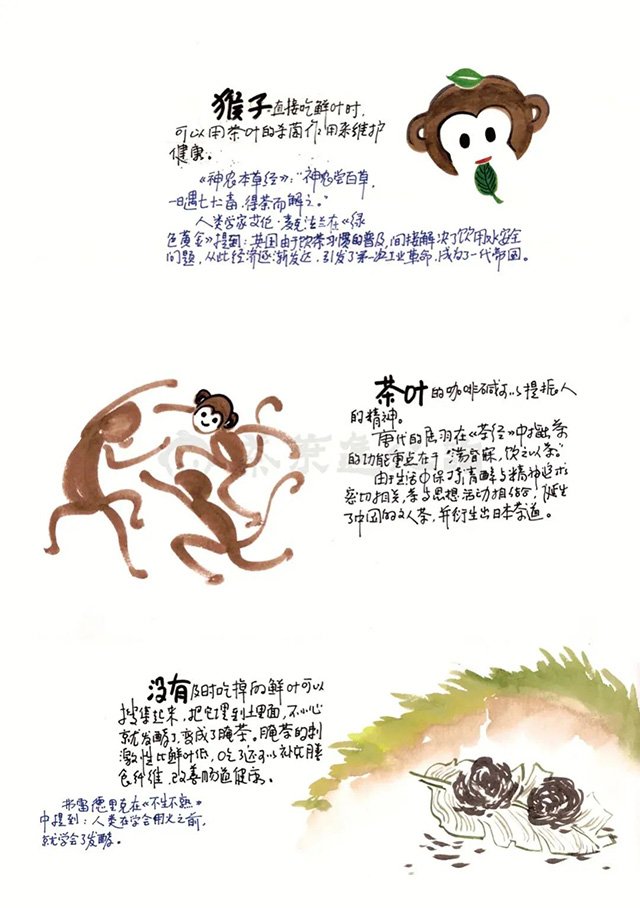 猴子直接吃鲜叶时，
可以用茶叶的杀菌作用来维护
健康。
《神农本草经》："神农尝百草，
一日遇七十二毒，得茶而解之。"
人类学家艾伦·麦克法兰在《绿
色黄金》提到：英国由于饮茶习惯的普及，间接解决了饮用水安全
问题，从此经济逐渐发达，引发了第一次工业革命，成为了一代帝国。
茶叶的咖啡碱可以提振人
的精神。
唐代的陆羽在《茶经》中指出茶
的功能重点在于"荡昏寐，饮之以茶"。
由于生活中保持清醒与精神追求
密切相关，茶与思想活动相结合，诞生
了中国的文人茶，并衍生出日本茶道。
没有及时吃掉的鲜叶可以
搜集起来，把它埋到土里面，不小心
就发酵了，变成了腌茶。腌茶的刺
激性比鲜叶低，吃了还可以补充膳
食纤维，改善肠道健康。
弗雷德里克在《不生不熟》
中提到：人类在学会用火之前，
就学会了发酵。